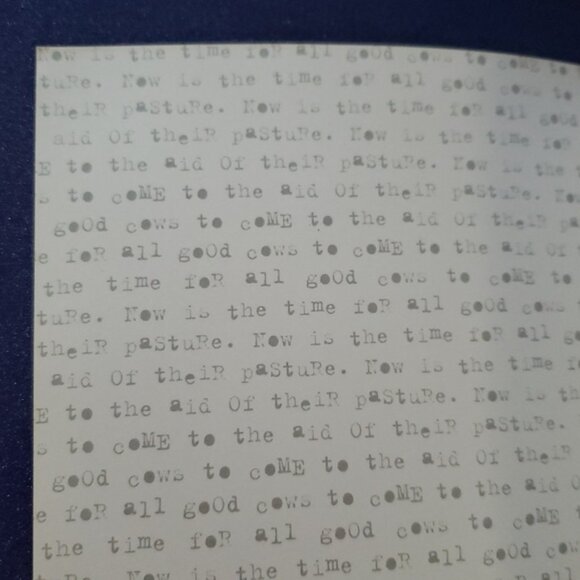 Now is the time foR all goOd cows to coME to
tuRe. Now is the time foR all goOd cows to
theiR paStuRe. Now is the time foR all goOd
aid Of theiR paStuRe. Now is the time foR
E to the aid Of theiR paStuRe. Now is the
s to coME to the aid Of theiR paStuRe. Now
goOd cows to coME to the aid Of theiR pa
e foR all goOd cows to coME to the aid Of
the time foR all goOd cows to coME to
tuRe. Now is the time foR all goOd cows
theiR paStuRe. Now is the time foR all go
aid Of theiR paStuRe. Now is the time fo
E to the aid Of theiR paStuRe. Now is th
s to coME to the aid Of theiR paStuRe.
goOd cows to coME to the aid Of theiR
e foR all goOd cows to coME to the aid O
the time foR all goOd cows to coME
Now is the time foR all goOd cow